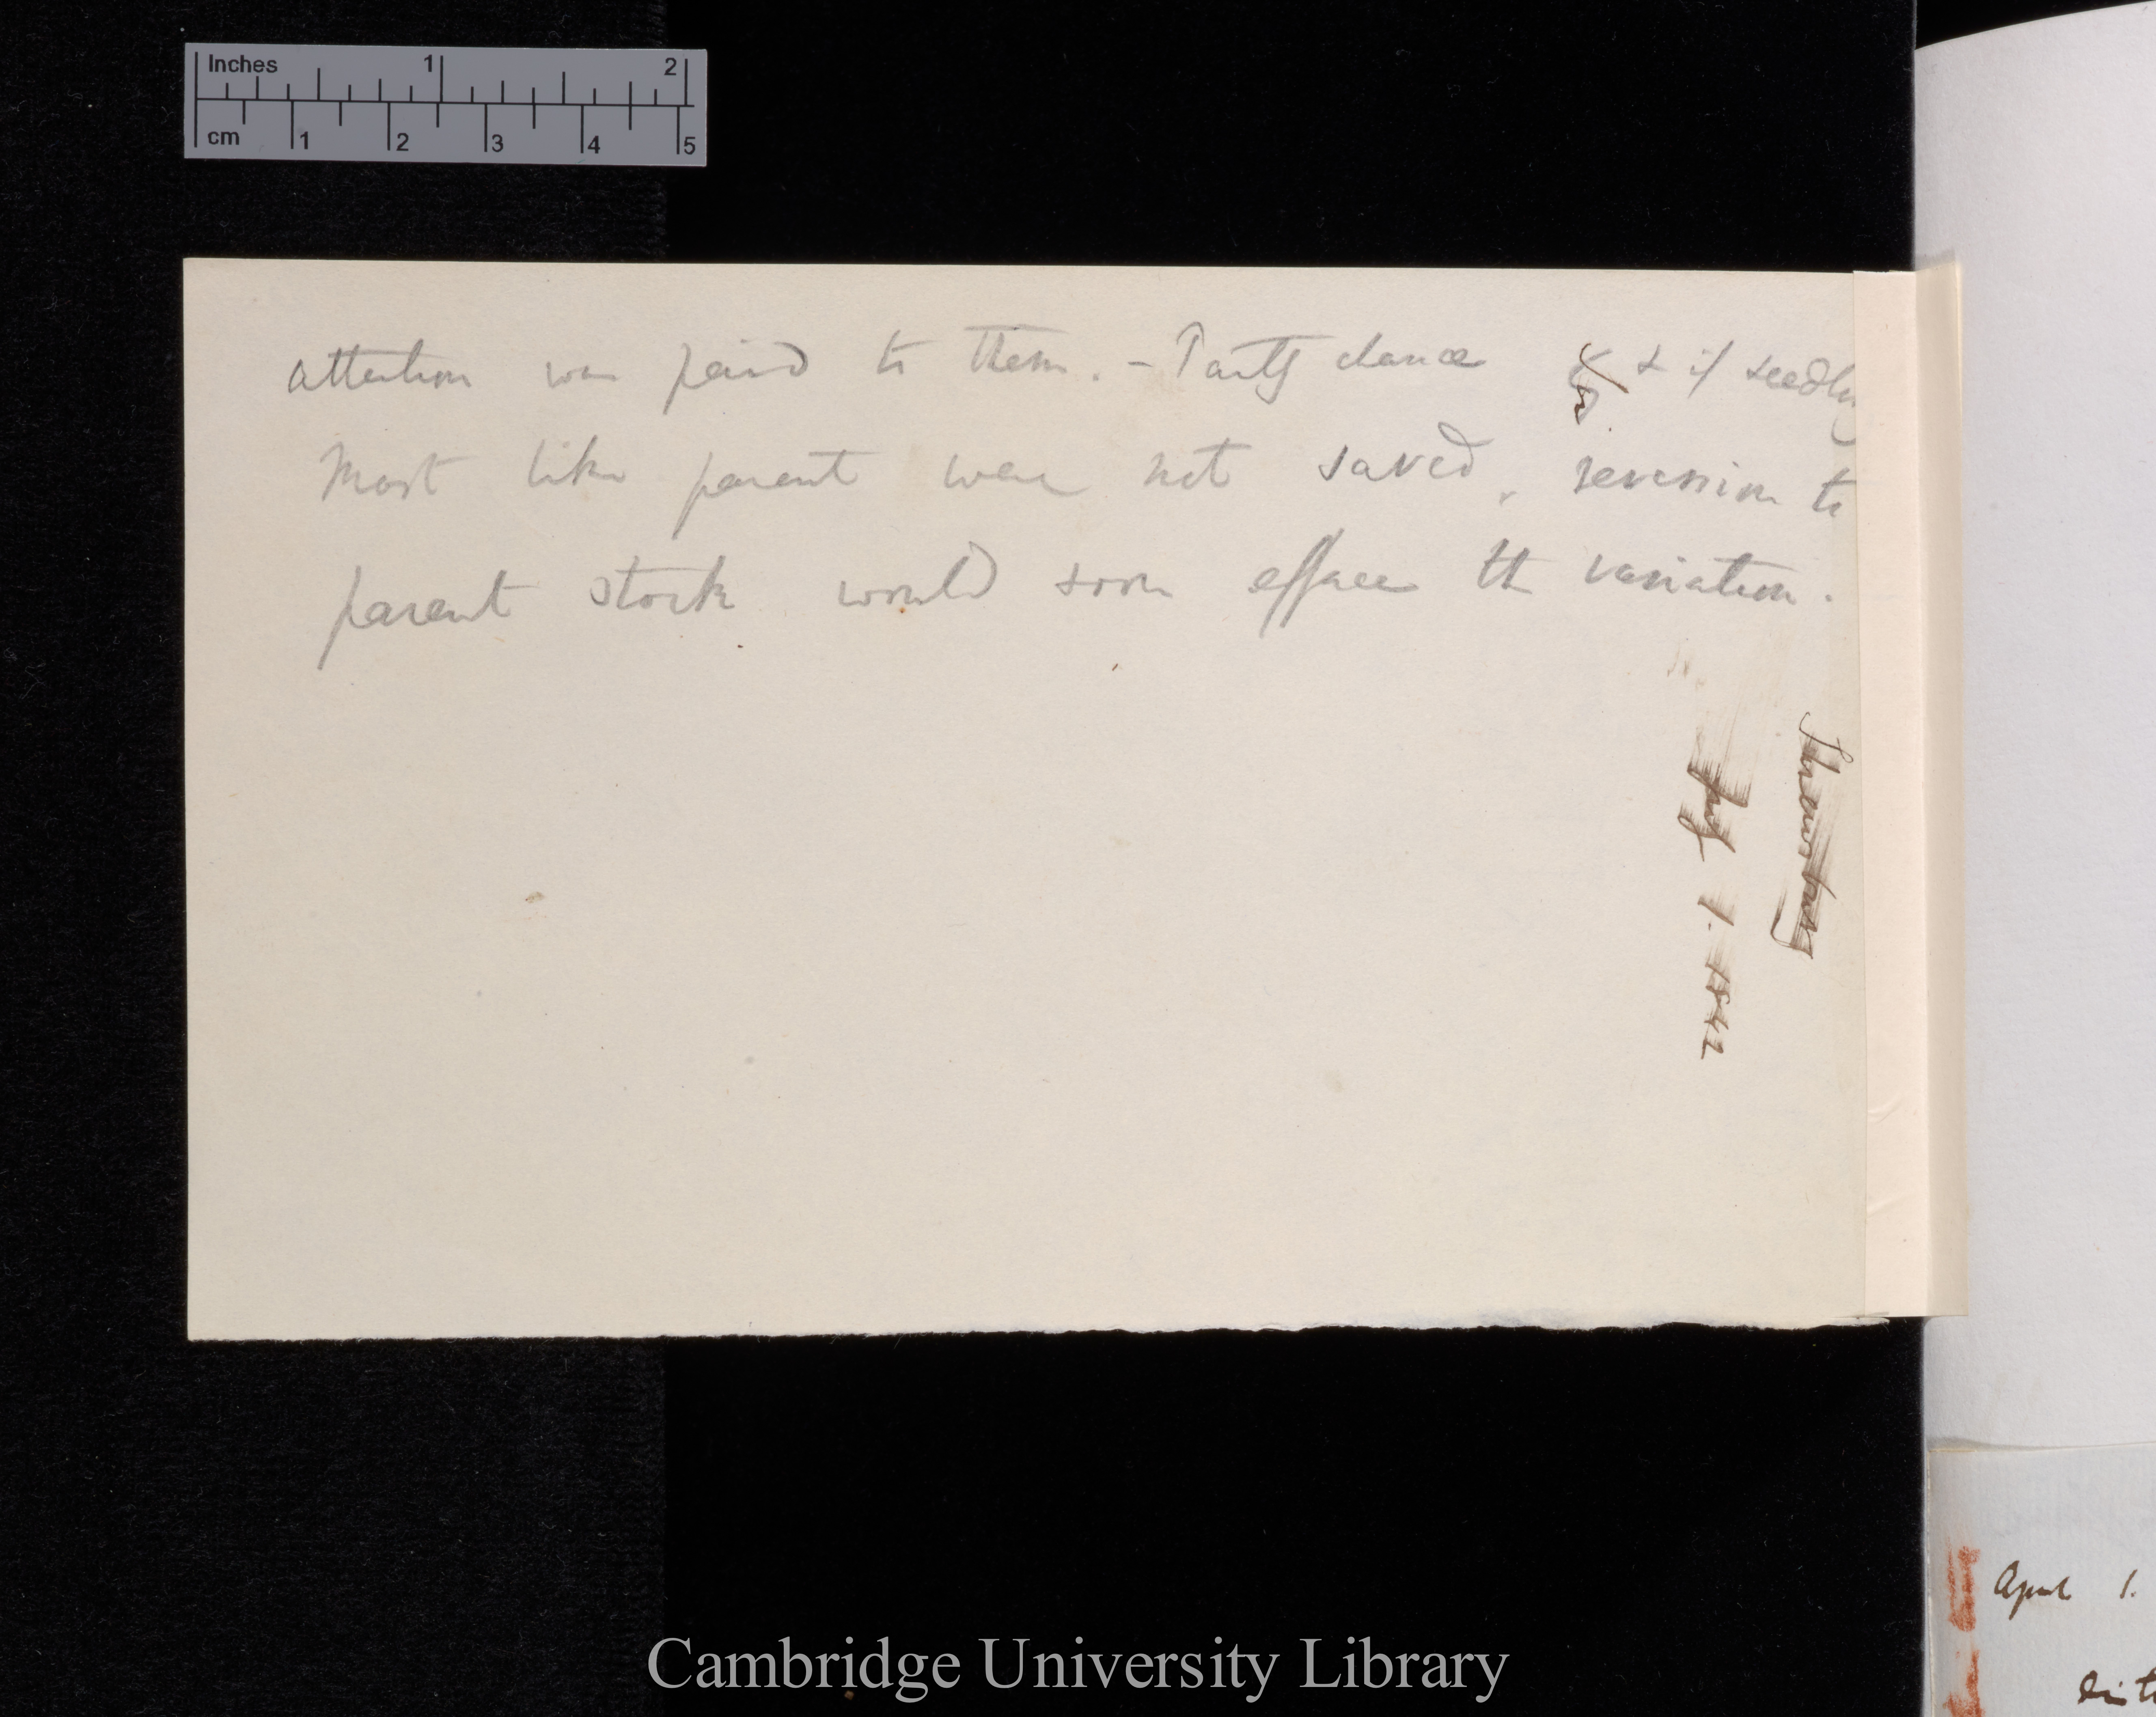 Inches 1 2
cm 1 2 3 4 5
attention was paid to them. – Partly chance & if seedling
most like parent were not saved, reversion to
parent stock would soon efface the variation.
Shrewsbury
July 1. 1842
April 1.
Cambridge University Library